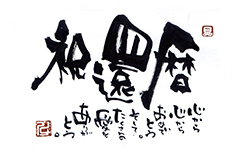 祝還暦
心から
心から
おめで
とう
そして
たくさんの
愛を
あり
がとう。